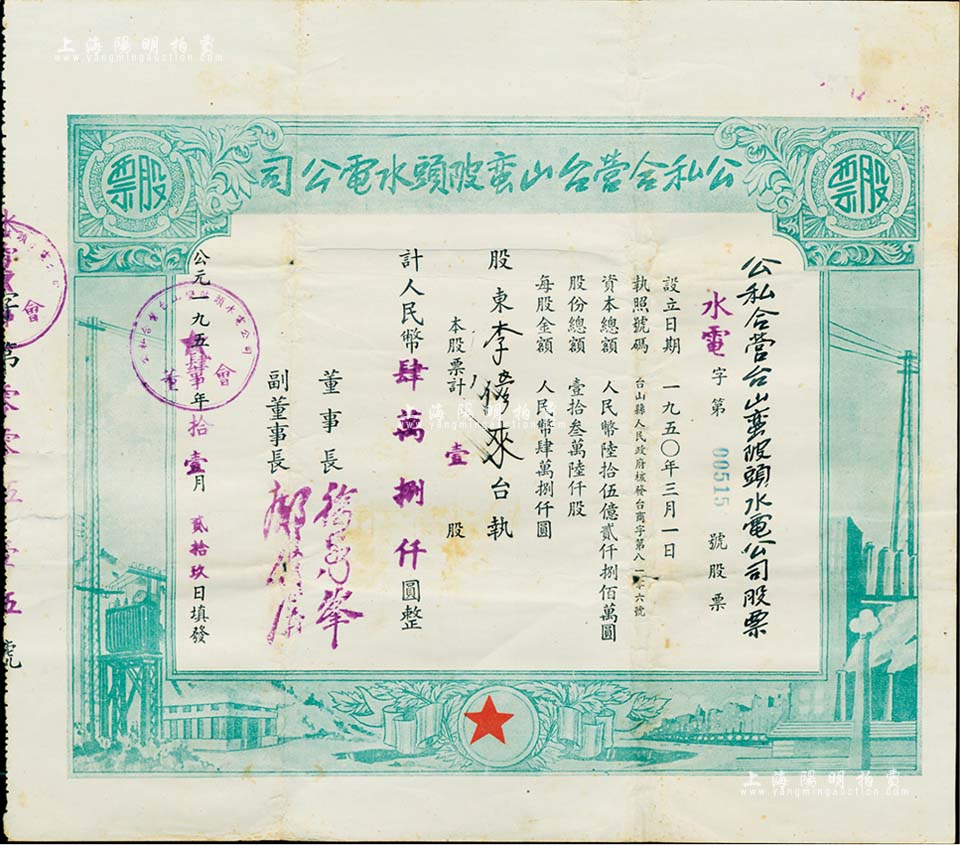 上海陽明拍賣
www.yangmingauction.com
股票
股票
公私合营台山蛮陂頭水電公司
公私合营台山蛮陂頭水電公司股票
水電字第 00515 號股票
設立日期 一九五〇年三月一日
執照號碼 台山縣人民政府核發台商字第八一零六號
資本總額 人民幣陸拾伍億貳仟捌佰萬圓
股份總額 壹拾叁萬陸仟股
每股金額 人民幣肆萬捌仟圓
股東李 來台執
本股票計 壹 股
計人民幣肆萬捌仟圓整
董事長
副董事長
公元一九五肆年拾壹月貳拾玖日填發
董 會
字第零零五壹五號
會
上海陽明拍賣
www.yangmingauction.com
上海陽明拍賣
www.yangmingauction.com